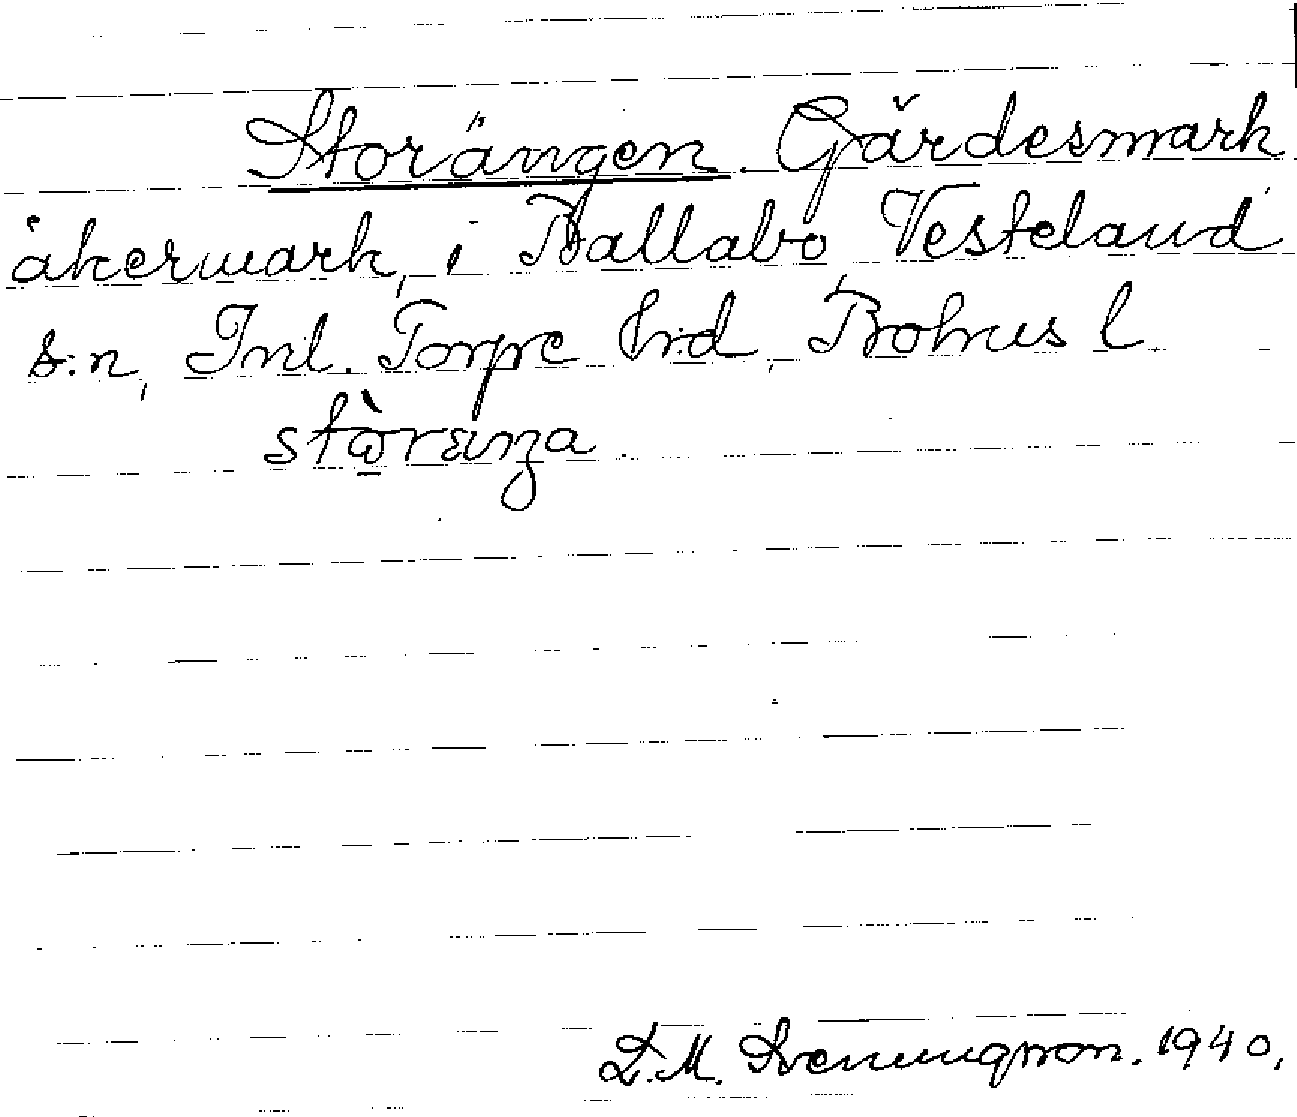 Storängen. Gärdesmark
åkermark, i Ballabo, Vesteland
s:n, Inl. Torpe hrd, Bohus l.
stòränga
D.M. Svenungsson. 1940.